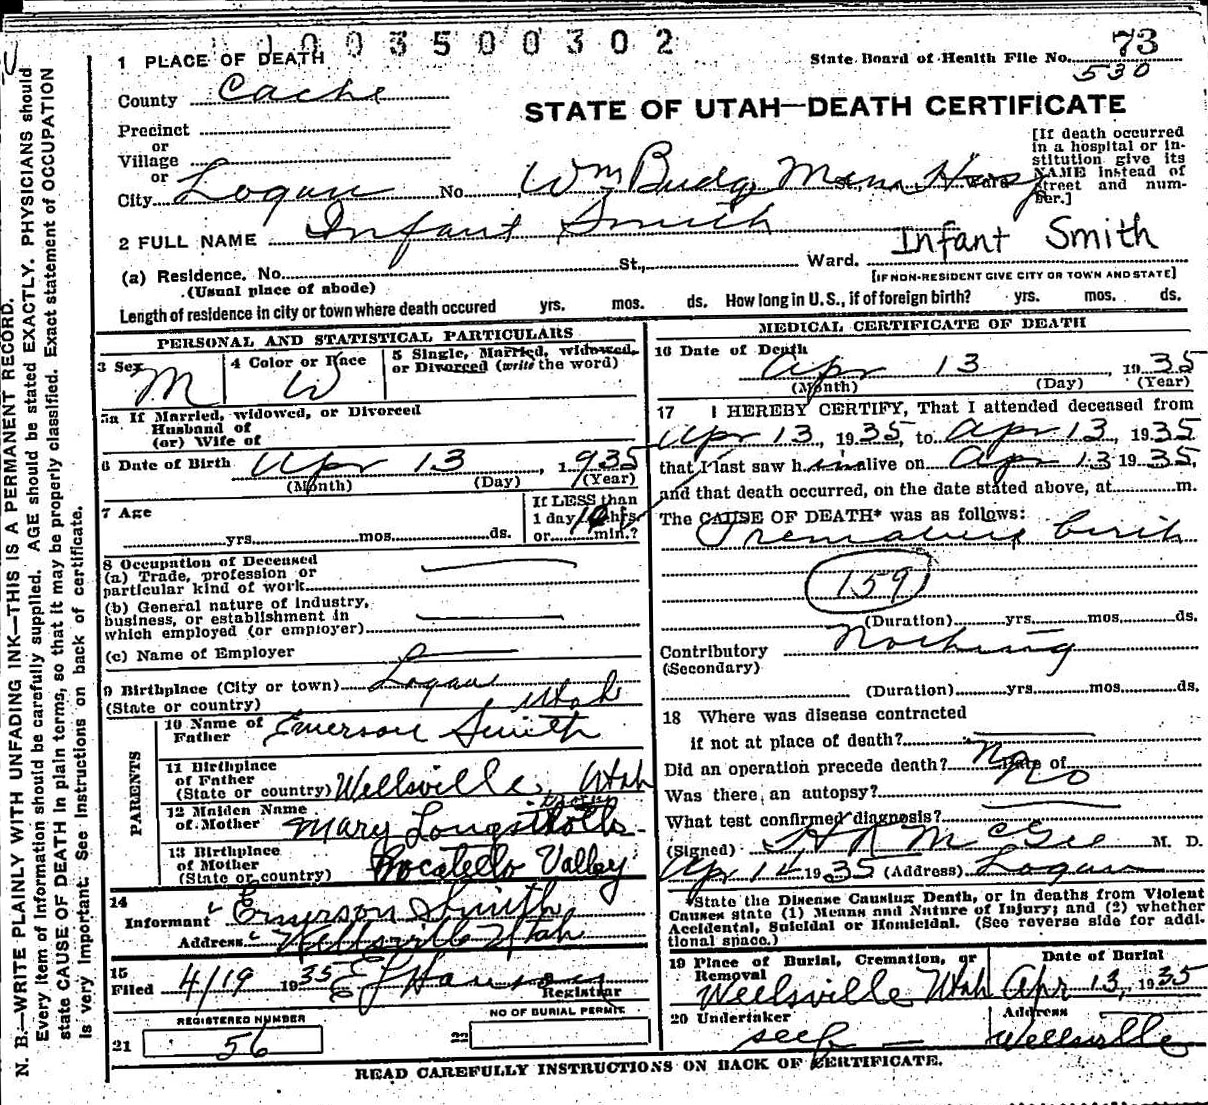 1003500302
1 PLACE OF DEATH
State Board of Health File No. 73
530
County Cache
STATE OF UTAH—DEATH CERTIFICATE
Precinct
or
Village
or
City Logan No. Wm Budg Mem Hosp Ward
[If death occurred in a hospital or institution give its NAME instead of street and number.]
2 FULL NAME Infant Smith
Infant Smith
(a) Residence. No. St., Ward.
(Usual place of abode)
[IF NON-RESIDENT GIVE CITY OR TOWN AND STATE]
Length of residence in city or town where death occured yrs. mos. ds. How long in U.S., if of foreign birth? yrs. mos. ds.
PERSONAL AND STATISTICAL PARTICULARS
3 Sex M
4 Color or Race W
5 Single, Married, widowed, or Divorced (write the word)
5a If Married, widowed, or Divorced
Husband of
(or) Wife of
6 Date of Birth Apr 13, 1935
(Month) (Day) (Year)
7 Age
yrs. mos. ds.
If LESS than
1 day hrs.
or min.?
8 Occupation of Deceased
(a) Trade, profession or
particular kind of work
(b) General nature of industry,
business, or establishment in
which employed (or employer)
(c) Name of Employer
9 Birthplace (City or town) Logan
(State or country) Utah
PARENTS
10 Name of
Father Emerson Smith
11 Birthplace
of Father
(State or country) Wellsville, Utah
12 Maiden Name
of Mother Mary
13 Birthplace
of Mother
(State or country) Pocatello Valley
14
Informant Emerson Smith
Address Wellsville Utah
15
Filed 4/19 1935
Registrar
REGISTERED NUMBER
21 56
NO OF BURIAL PERMIT
22
MEDICAL CERTIFICATE OF DEATH
16 Date of Death
Apr 13, 1935
(Month) (Day) (Year)
17 I HEREBY CERTIFY, That I attended deceased from
Apr 13, 1935, to Apr 13, 1935
that I last saw h im alive on Apr 13 1935,
and that death occurred, on the date stated above, at m.
The CAUSE OF DEATH* was as follows:
Premature birth
159
(Duration) yrs. mos. ds.
Contributory Nothing
(Secondary)
(Duration) yrs. mos. ds.
18 Where was disease contracted
if not at place of death?
Did an operation precede death? no Date of
Was there an autopsy? No
What test confirmed diagnosis?
(Signed) H R McGee M. D.
Apr 14 1935 (Address) Logan
*State the Disease Causing Death, or in deaths from Violent
Causes state (1) Means and Nature of Injury; and (2) whether
Accidental, Suicidal or Homicidal. (See reverse side for addi-
tional space.)
19 Place of Burial, Cremation, or
Removal
Wellsville Utah
Date of Burial
Apr 13, 1935
20 Undertaker
self
Address
Wellsville
READ CAREFULLY INSTRUCTIONS ON BACK OF CERTIFICATE.
N. B.—WRITE PLAINLY WITH UNFADING INK—THIS IS A PERMANENT RECORD.
Every item of information should be carefully supplied. AGE should be stated EXACTLY. PHYSICIANS should
state CAUSE OF DEATH in plain terms, so that it may be properly classified. Exact statement of OCCUPATION
is very important. See Instructions on back of certificate.